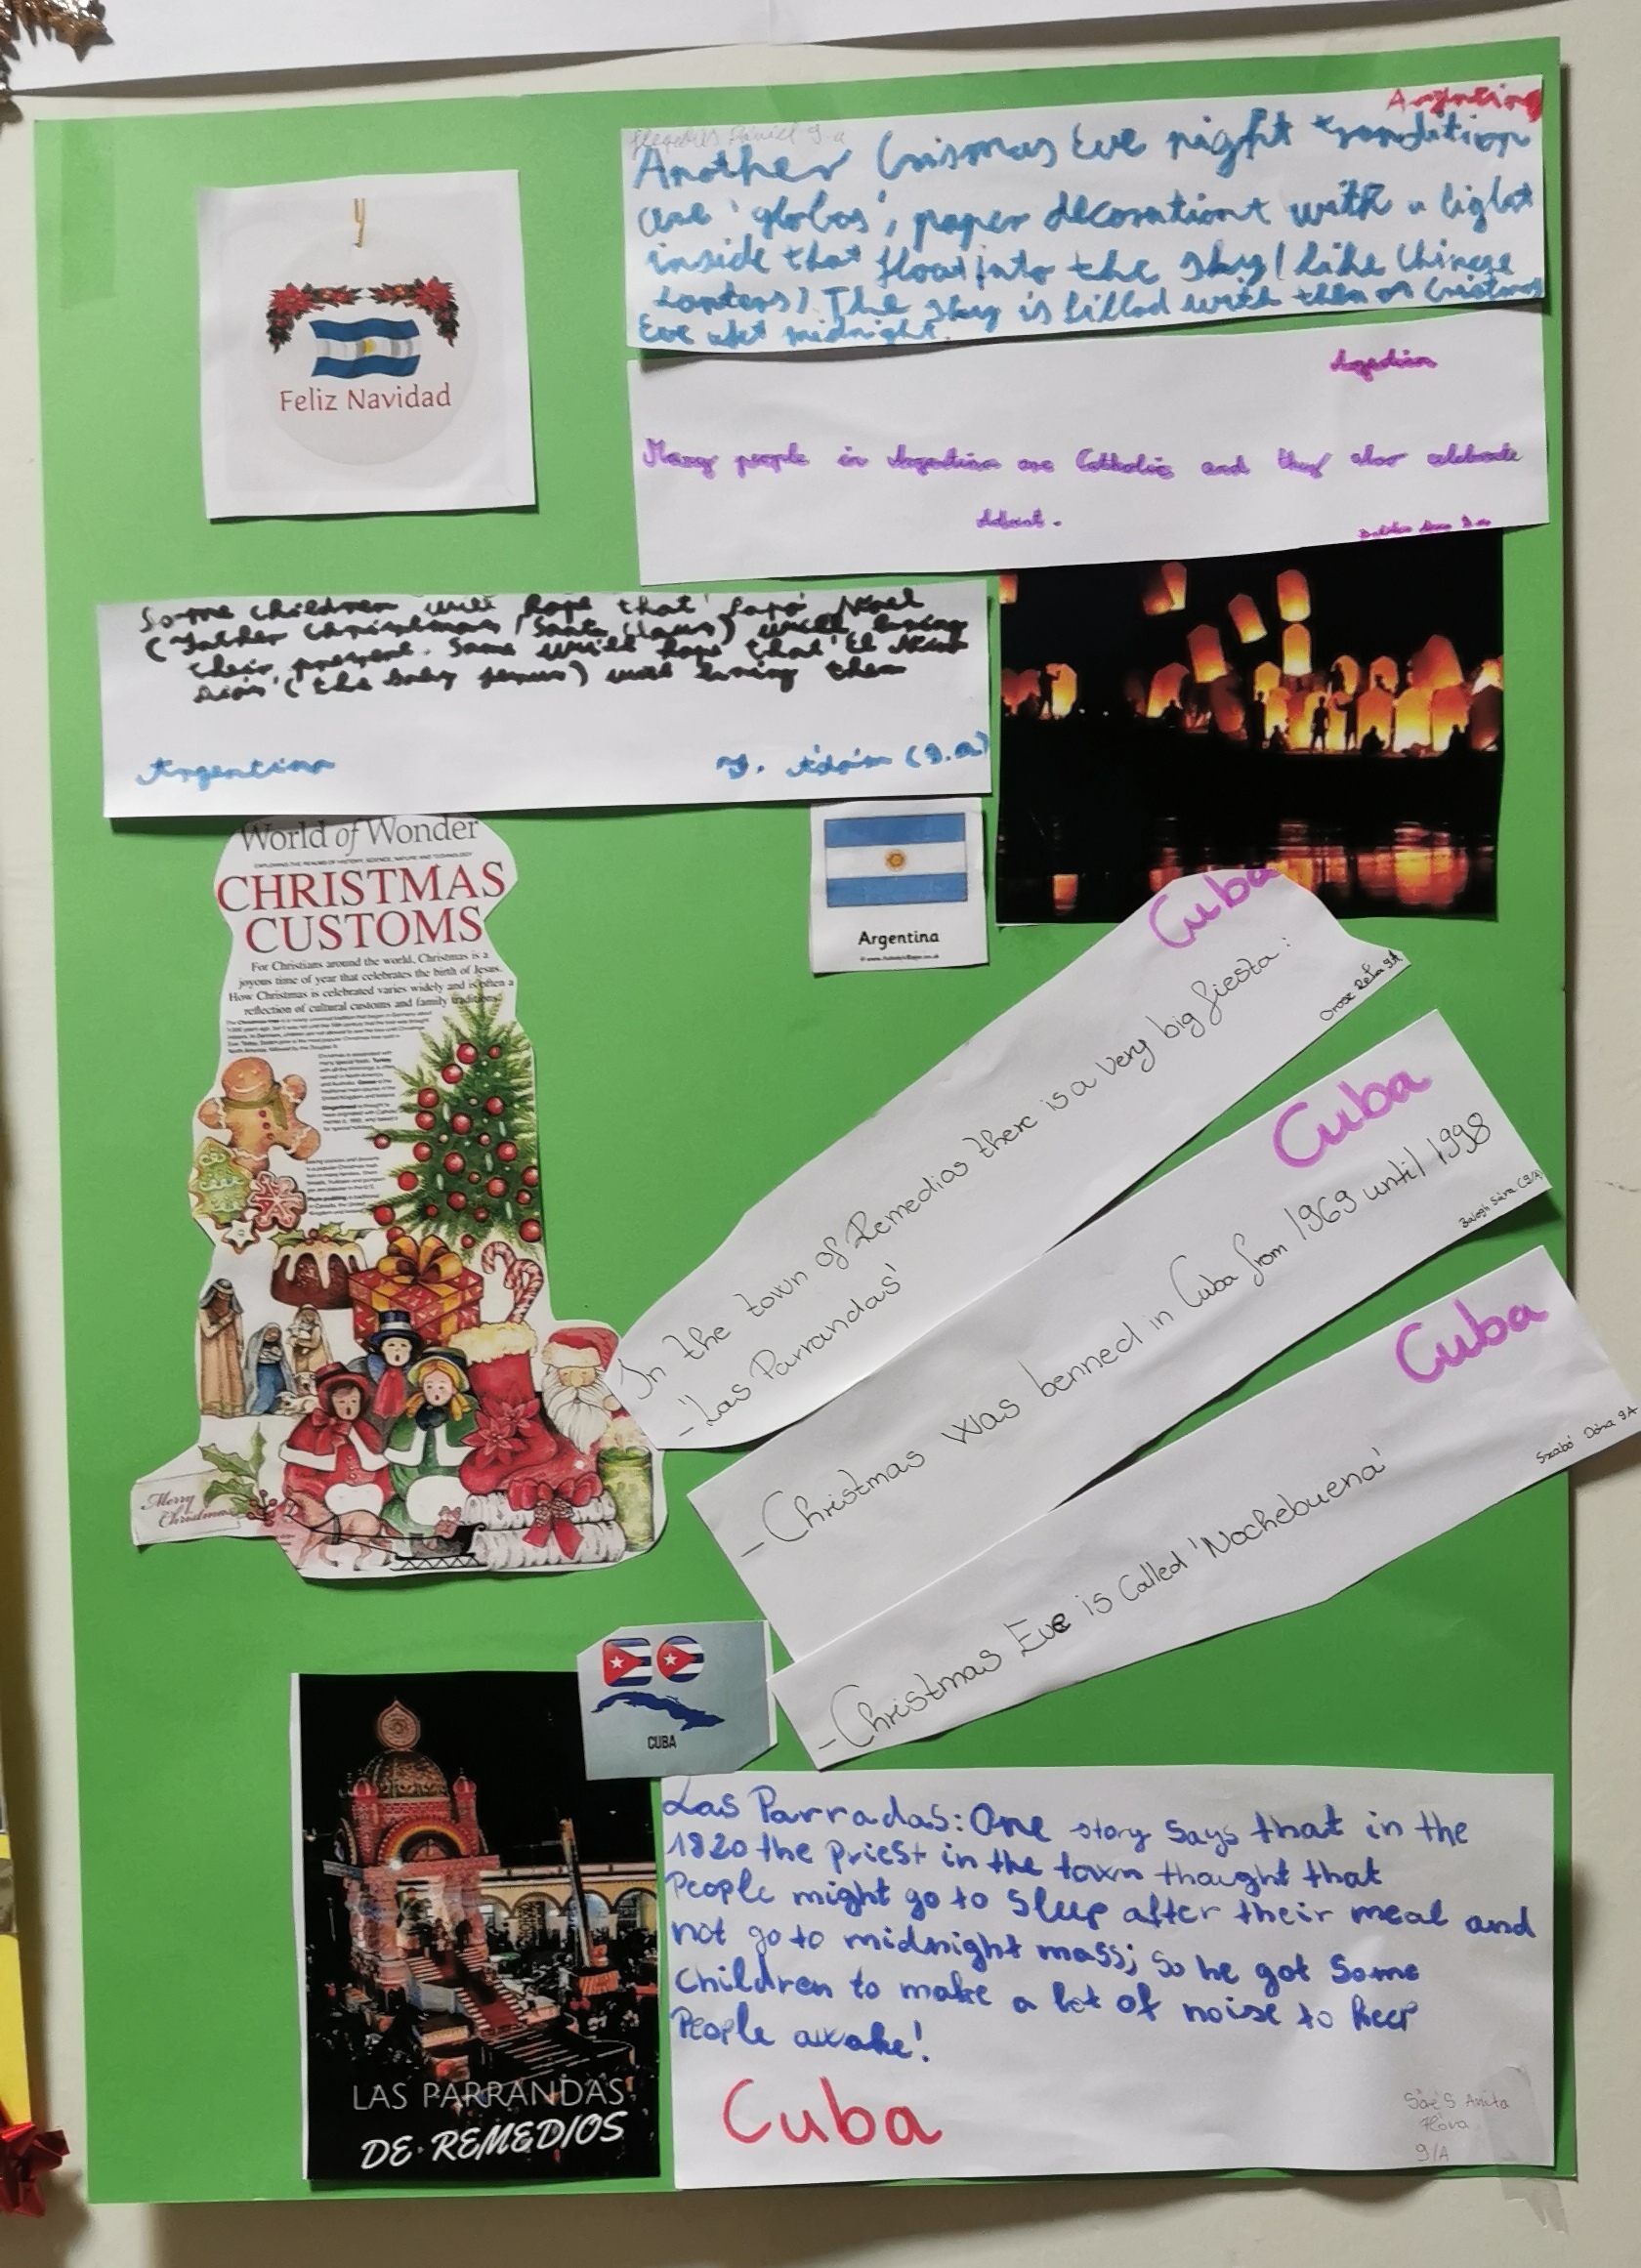 Argentina
Another Crismas Eve night trandition
are 'globos', paper decorationt with a light
inside that float into the sky (like Chinese
Lanters). The sky is filled with them on Cristmas
Eve aft midnight.
Feliz Navidad
Many people in Argentina are Catholic and they also celebrate
Advent.
Some children will hope that 'Papá Noel
(Father Christmas/Santa Claus) will bring
their present. Some will hope that 'El Nino
Dios' (the baby Jenus) will bring them
Argentina
Y. Ádám (9.a)
Argentina
World of Wonder
EXPLORING THE REALMS OF HISTORY, SCIENCE, NATURE AND TECHNOLOGY
CHRISTMAS
CUSTOMS
For Christians around the world, Christmas is a
joyous time of year that celebrates the birth of Jesus.
How Christmas is celebrated varies widely and is often a
reflection of cultural customs and family traditions.
Merry
Christmas
Cuba
In the town of Remedios there is a very big fiesta:
-'Las Parrandas'
Orosz Réka 9A
Cuba
-Christmas was benned in Cuba from 1969 until 1998
Balogh Sára (9/A)
Cuba
-Christmas Eve is called 'Nochebuena'
Szabó Dóra 9A
CUBA
LAS PARRANDAS
DE REMEDIOS
Las Parradas: One story says that in the
1820 the priest in the town thought that
People might go to sleep after their meal and
not go to midnight mass; so he got some
children to make a lot of noise to keep
People awake!
Cuba
Anita
Flóra
9/A